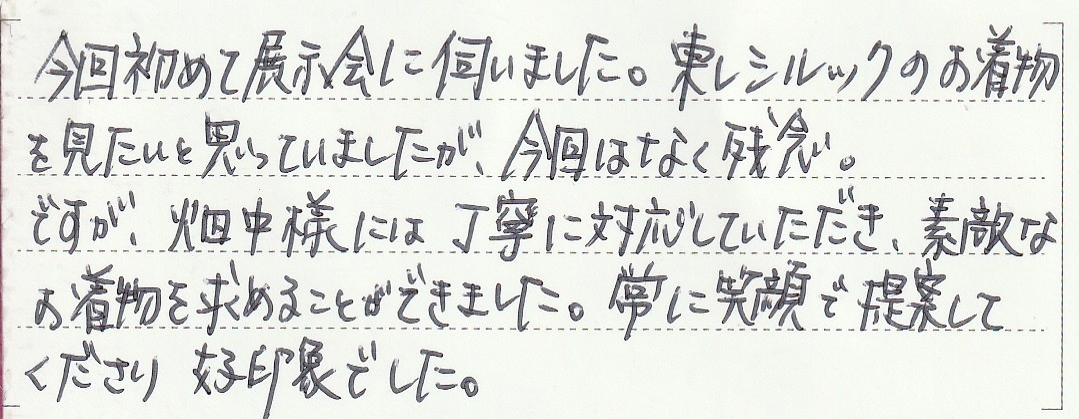 今回初めて展示会に伺いました。東レシルックのお着物
を見たいと思っていましたが、今回はなく残念。
ですが、畑中様には丁寧に対応していただき、素敵な
お着物を求めることができました。常に笑顔で提案して
くださり 好印象でした。